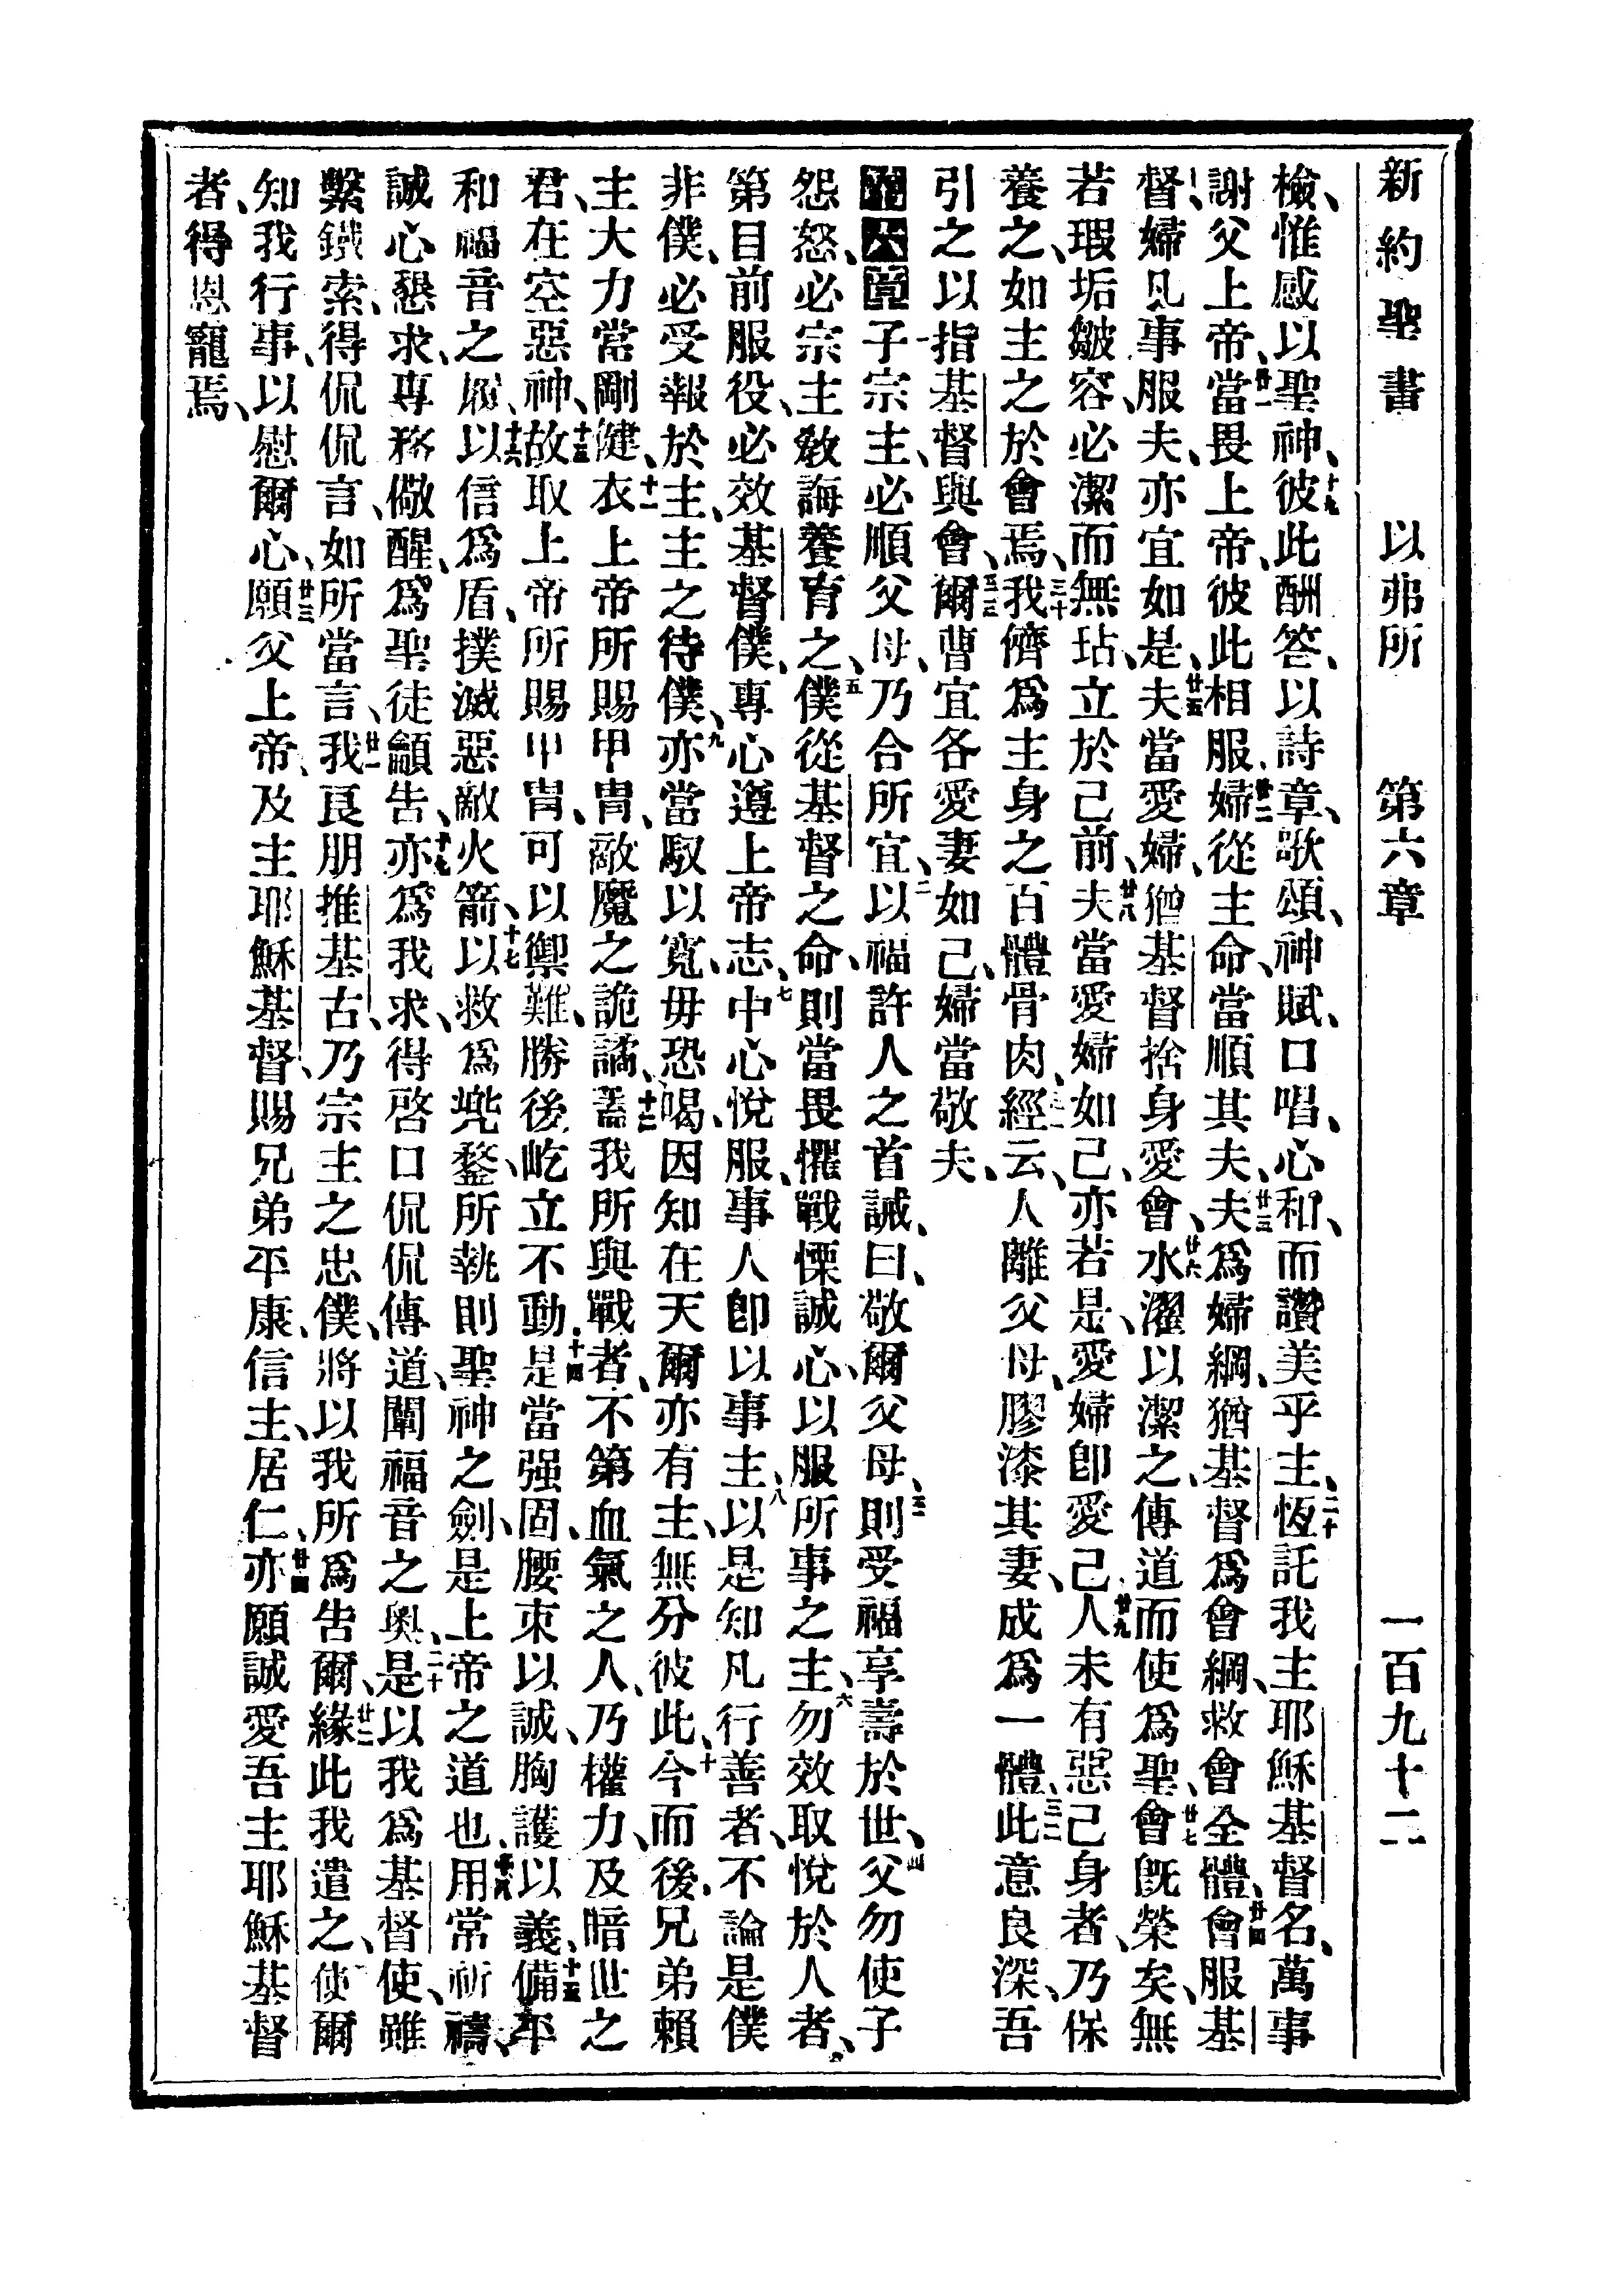 新約聖書　以弗所　第六章　一百九十二
檢、惟感以聖神、十九彼此酬答、以詩章、歌頌、神賦、口唱、心和、而讚美乎主、二十恆託我主耶穌基督名、萬事
謝父上帝、廿一當畏上帝、彼此相服、廿二婦從主命、當順其夫、廿三夫爲婦綱、猶基督爲會綱、救會全體、廿四會服基
督、婦凡事服夫、亦宜如是、廿五夫當愛婦、猶基督捨身愛會、廿六水濯以潔之、傳道而使爲聖、廿七會旣榮矣、無
若瑕垢皺容、必潔而無玷、立於己前、廿八夫當愛婦如己、亦若是、愛婦卽愛己、廿九人未有惡己身者、乃保
養之、如主之於會焉、三十我儕爲主身之百體骨肉、經云、人離父母、膠漆其妻、成爲一體、三二此意良深、吾
引之以指基督與會、三三爾曹宜各愛妻如己、婦當敬夫、
第六章一子宗主、必順父母、乃合所宜、二以福許人之首誡、曰、敬爾父母、三則受福享壽於世、四父勿使子
怨怒、必宗主敎誨養育之、五僕從基督之命、則當畏懼戰慄、誠心以服所事之主、六勿效取悅於人者、
第目前服役、必效基督僕、專心遵上帝志、七中心悅服、事人卽以事主、八以是知凡行善者、不論是僕
非僕、必受報於主、主之待僕、九亦當馭以寬、毋恐喝、因知在天爾亦有主、無分彼此、十今而後、兄弟賴
主大力當剛健、十一衣上帝所賜甲胄、敵魔之詭譎、十二蓋我所與戰者、不第血氣之人、乃權力、及暗世之
君、在空惡神、十三故取上帝所賜甲胄、可以禦難、勝後屹立不動、十四是當强固、腰束以誠、胸護以義、十五備平
和福音之履、十六以信爲盾、撲滅惡敵火箭、十七以救爲兠鍪、所執則聖神之劍、是上帝之道也、十八用常祈禱、
誠心懇求、專務儆醒、爲聖徒籲告、十九亦爲我求、得啓口侃侃傳道、闡福音之奧、二十是以我爲基督使、雖
繫鐵索、得侃侃言、如所當言、廿一我良朋推基古、乃宗主之忠僕、將以我所爲告爾、廿二緣此我遣之、使爾
知我行事、以慰爾心、廿三願父上帝、及主耶穌基督、賜兄弟平康、信主、居仁、廿四亦願誠愛吾主耶穌基督
者、得恩寵焉、